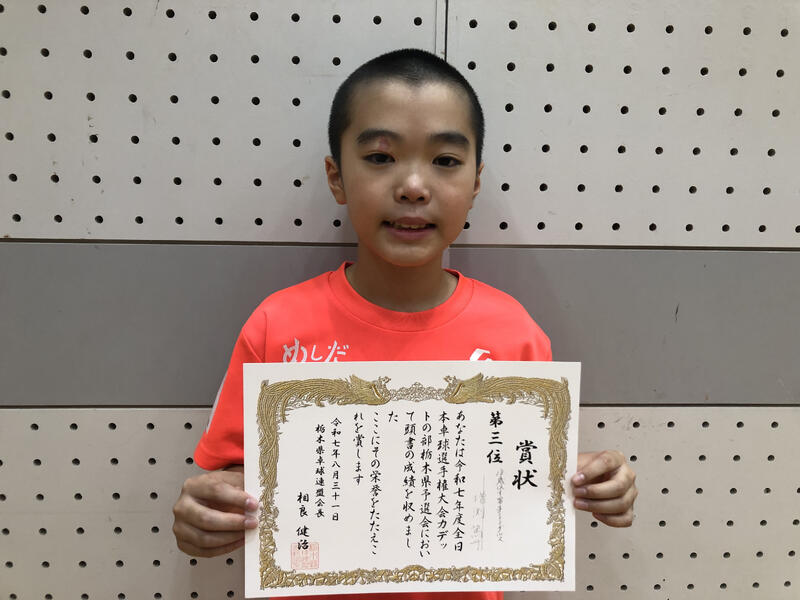 めしだ
賞状
第三位
あなたは令和七年度全日
本卓球選手権大会カデッ
トの部栃木県予選会におい
て頭書の成績を収めまし
た
ここにその栄誉をたたえこ
れを賞します
令和七年八月三十一日
栃木県卓球連盟会長
相良 健治